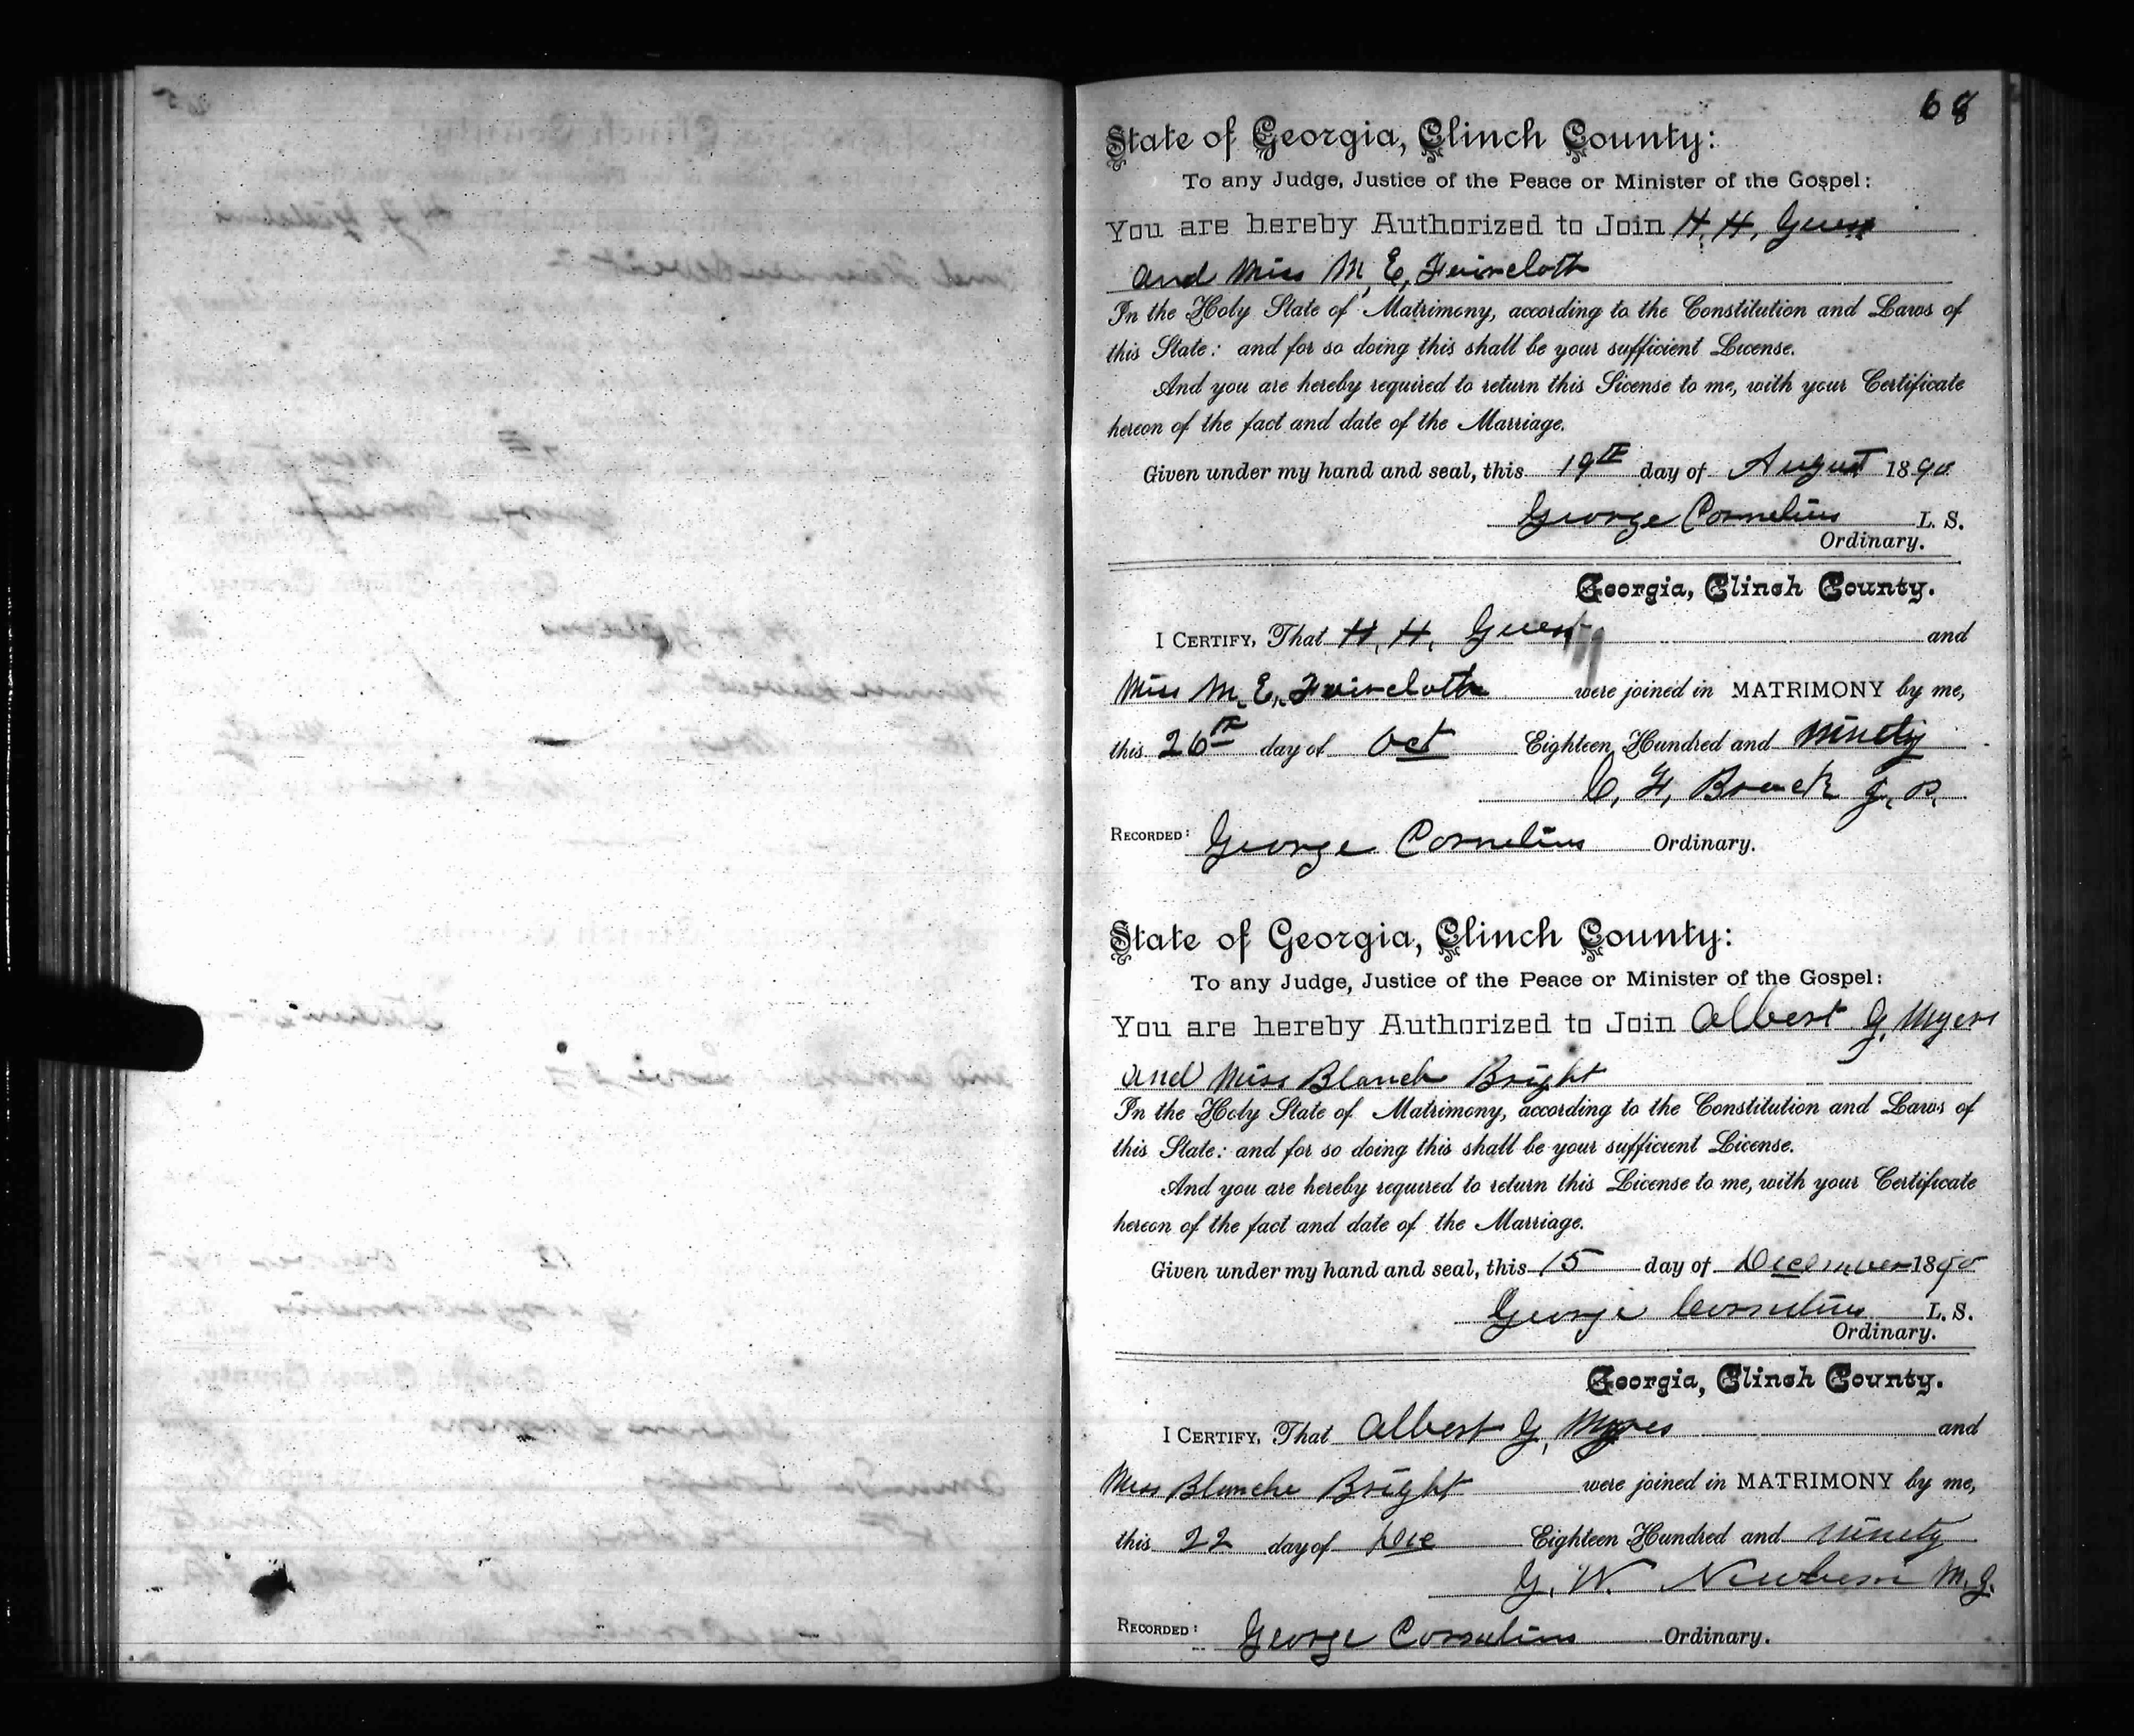 68
State of Georgia, Clinch County:
To any Judge, Justice of the Peace or Minister of the Gospel:
You are hereby Authorized to Join H. H. Guess
and Miss M. E. Faircloth
In the Holy State of Matrimony, according to the Constitution and Laws of
this State: and for so doing this shall be your sufficient License.
And you are hereby required to return this License to me, with your Certificate
hereon of the fact and date of the Marriage.
Given under my hand and seal, this 19th day of August 1890
George Cornelius L. S.
Ordinary.
Georgia, Clinch County.
I CERTIFY, That H. H. Guess and
Miss M. E. Faircloth were joined in MATRIMONY by me,
this 26th day of Oct Eighteen Hundred and Ninety
C. F. Brack J. P.
RECORDED: George Cornelius Ordinary.
State of Georgia, Clinch County:
To any Judge, Justice of the Peace or Minister of the Gospel:
You are hereby Authorized to Join Albert G. Myers
and Miss Blanch Bright
In the Holy State of Matrimony, according to the Constitution and Laws of
this State: and for so doing this shall be your sufficient License.
And you are hereby required to return this License to me, with your Certificate
hereon of the fact and date of the Marriage.
Given under my hand and seal, this 15 day of December 1890
George Cornelius L. S.
Ordinary.
Georgia, Clinch County.
I CERTIFY, That Albert G. Myres and
Miss Blanche Bright were joined in MATRIMONY by me,
this 22 day of Dec Eighteen Hundred and ninety
G. W. Newbern M. G.
RECORDED: George Cornelius Ordinary.